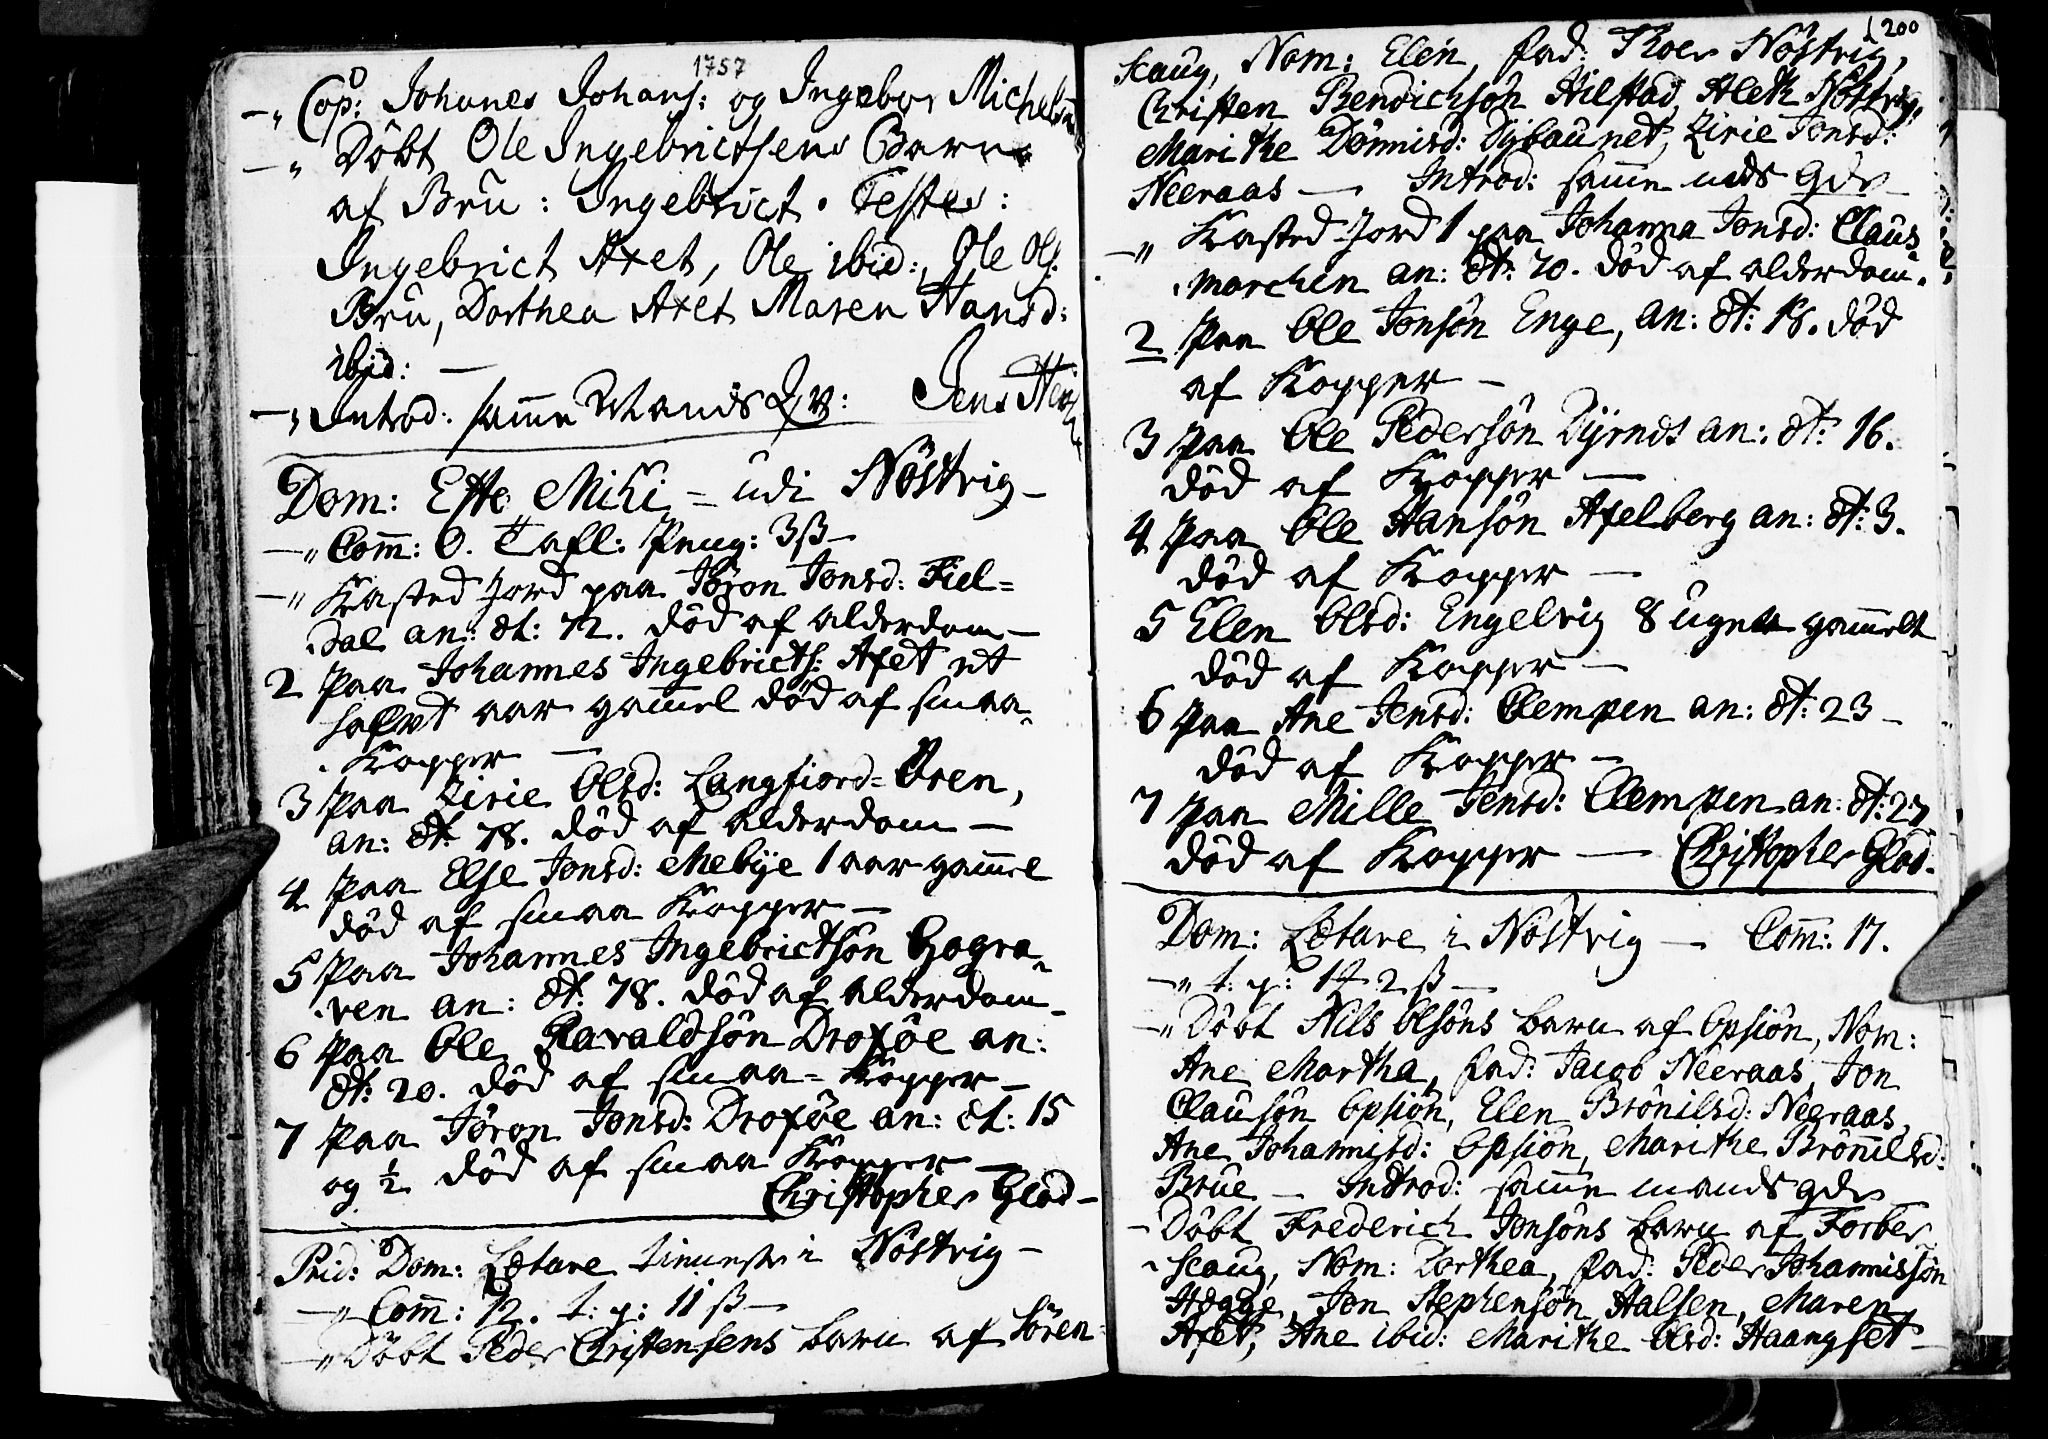 1757
-" Cop: Johanes Johans: og Ingebor Michels
-" Döbt Ole Ingebrictsens Barn
af Brü: Ingebrict. Testes:
Ingebrict Axet, Ole ibid:, Ole Ols:
Brü, Dorthea Axet Maren Hansd:
ibid: —
-" Introd: samme Mands Qv: Jens
Dom: Esto Mihi = udi Nöstvig -
-" Com̄: 0. Tafl: Peng: 3 ß -
-" Kasted Jord paa Jöron Jonsd: Fiel=
dal an: æt: 72. död af alderdom -
2 Paa Johannes Ingebricts: Axet et
halvt aar gam̄el död af smaa-
Kopper —
3 Paa Zirie Olsd: Langfiord=Ören,
an: æt: 78. död af alderdom —
4 Paa Else Jonsd: Mebÿe 1 aar gam̄el
död af smaa Kopper —
5 Paa Johannes Ingebrictsön Hogra-
ven an: æt: 78. död af alderdom -
6 Paa Ole Havaldsön Dropöe an:
æt: 20. död af smaa=Kopper -
7 Paa Jöron Jonsd: Dropöe an: æt: 15
og ½ död af smaa Kopper —
Christopher Glad -
Prid: Dom: Lætare tienneste i Nöstvig -
-" Com̄: 12. t: p: 11 ß -
-" Döbt Peder Christensens barn af Sören-
200
scaug, Nom: Elen, fad: Thoer Nöstvig,
Christen Bendichsön Hilstad, Aleth Nöstvig,
Marithe Dönnisd: Dÿbaunet, Zirie Jonsd:
Neeraas — Introd: samme mds qde -
-" Kasted Jord 1 paa Johanna Jonsd: Claus
marchen an: æt: 70. död af alderdom.
2 Paa Ole Jonsön Enge, an: æt: 18. död
af Kopper -
3 Paa Ole Pedersön Dÿrnds an: æt: 16.
död af Kopper —
4 Paa Ole Hansön Axelberg an: æt: 3.
död af Kopper —
5 Elen Olsd: Engelvig 8 uger gam̄elt
död af Kopper —
6 Paa Ane Jensd: Clempen an: æt: 23 -
död af Kopper -
7 Paa Mille Jensd: Clempen an: æt: 27
död af Kopper — Christopher Glad.
Dom: Lætare i Nöstvig - Com̄: 17.
-" t: p: 1 2 ß -
-" Döbt Nils Olsöns barn af Opsiön, Nom:
Ane Martha, fad: Jacob Neeraas, Jon
Clausön Opsiön, Elen Brönilsd: Neeraas,
Ane Johannisd: Opsiön, Marithe Brönnilsd:
Brue - Introd: samme mands qde -
- Döbt Frederich Jonsöns barn af Torber
scaug, Nom: Dorthea, fad: Peder Johannissön
Hegge, Jon Stephensön Halsen, Maren
Axet, Ane ibid: Marithe Olsd: Haangset -